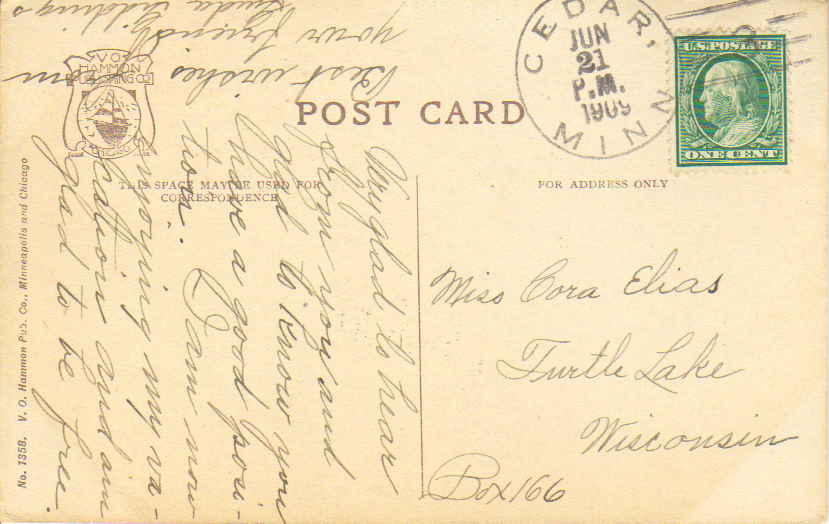 POST CARD
CEDAR, MINN
JUN
21
P.M.
1909
U.S. POSTAGE
ONE CENT
V.O.
HAMMON
PUBLISHING CO.
CHICAGO
THIS SPACE MAY BE USED FOR
CORRESPONDENCE
FOR ADDRESS ONLY
Very glad to hear
from you and
glad to know you
have a good posi-
tion. I am now
injoying my va-
cation and am
glad to be free.
Best wishes from
your friend
Giddings
Miss Cora Elias
Turtle Lake
Wisconsin
Box 166
No. 1358. V. O. Hammon Pub. Co., Minneapolis and Chicago